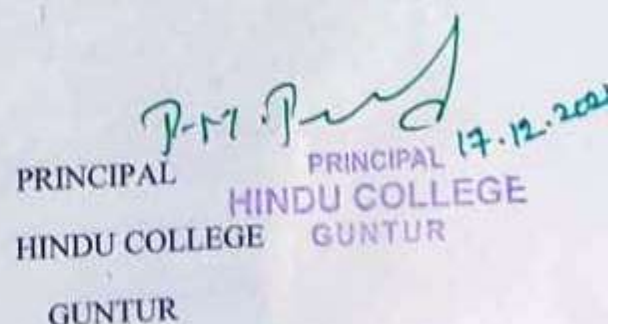 P.M.P
17.12.202
PRINCIPAL
HINDU COLLEGE
GUNTUR
PRINCIPAL
HINDU COLLEGE
GUNTUR